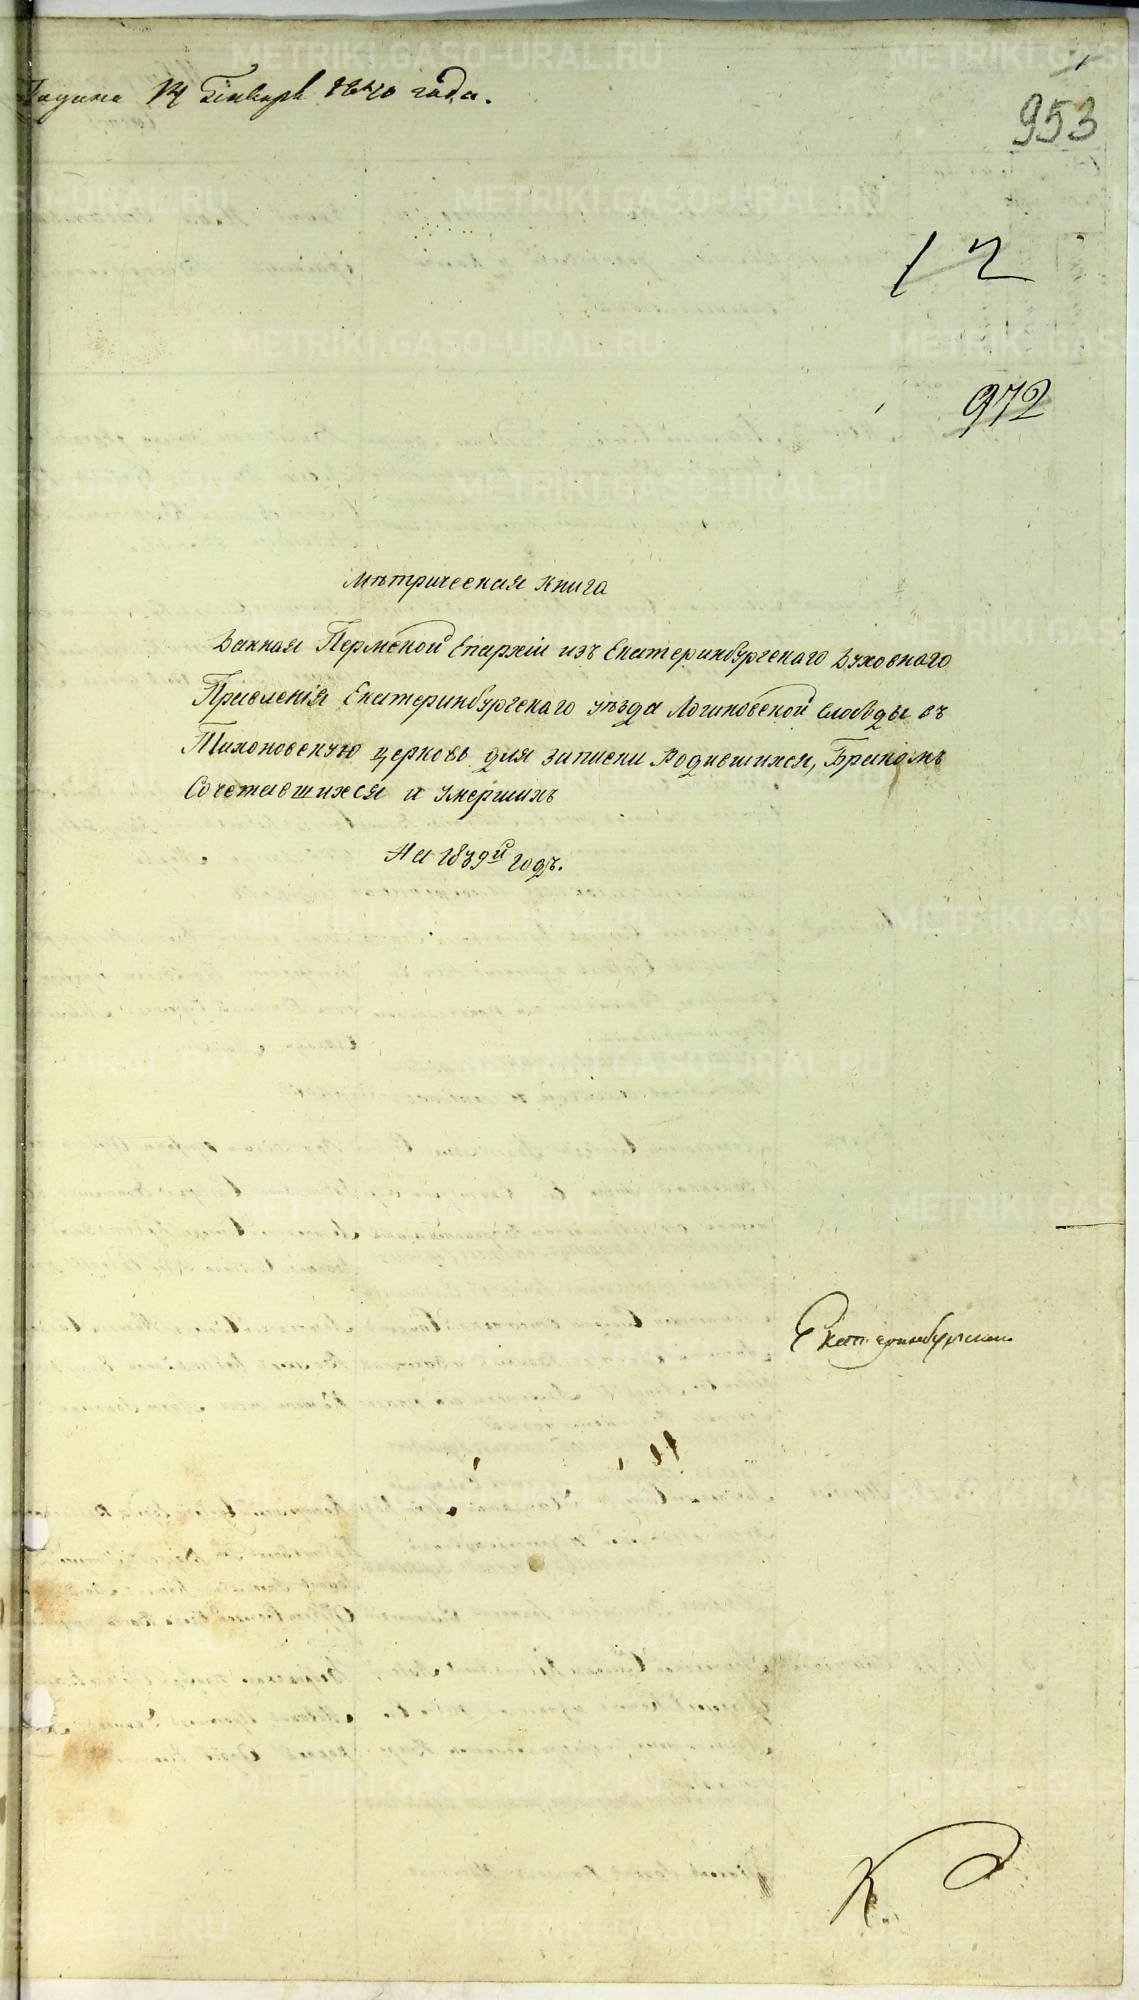 14 Генваря 1840 года.
953
12
972
Метрическая книга
Данная Пермской Епархiи изъ Екатеринбургскаго Духовнаго
Правленiя Екатеринбургскаго уѣзда Логиновской слободы въ
Тихоновскую церковь для записки Родившихся, Бракомъ
Сочетавшихся и умершихъ
На 1839й годъ.
METRIKI.GASO-URAL.RU